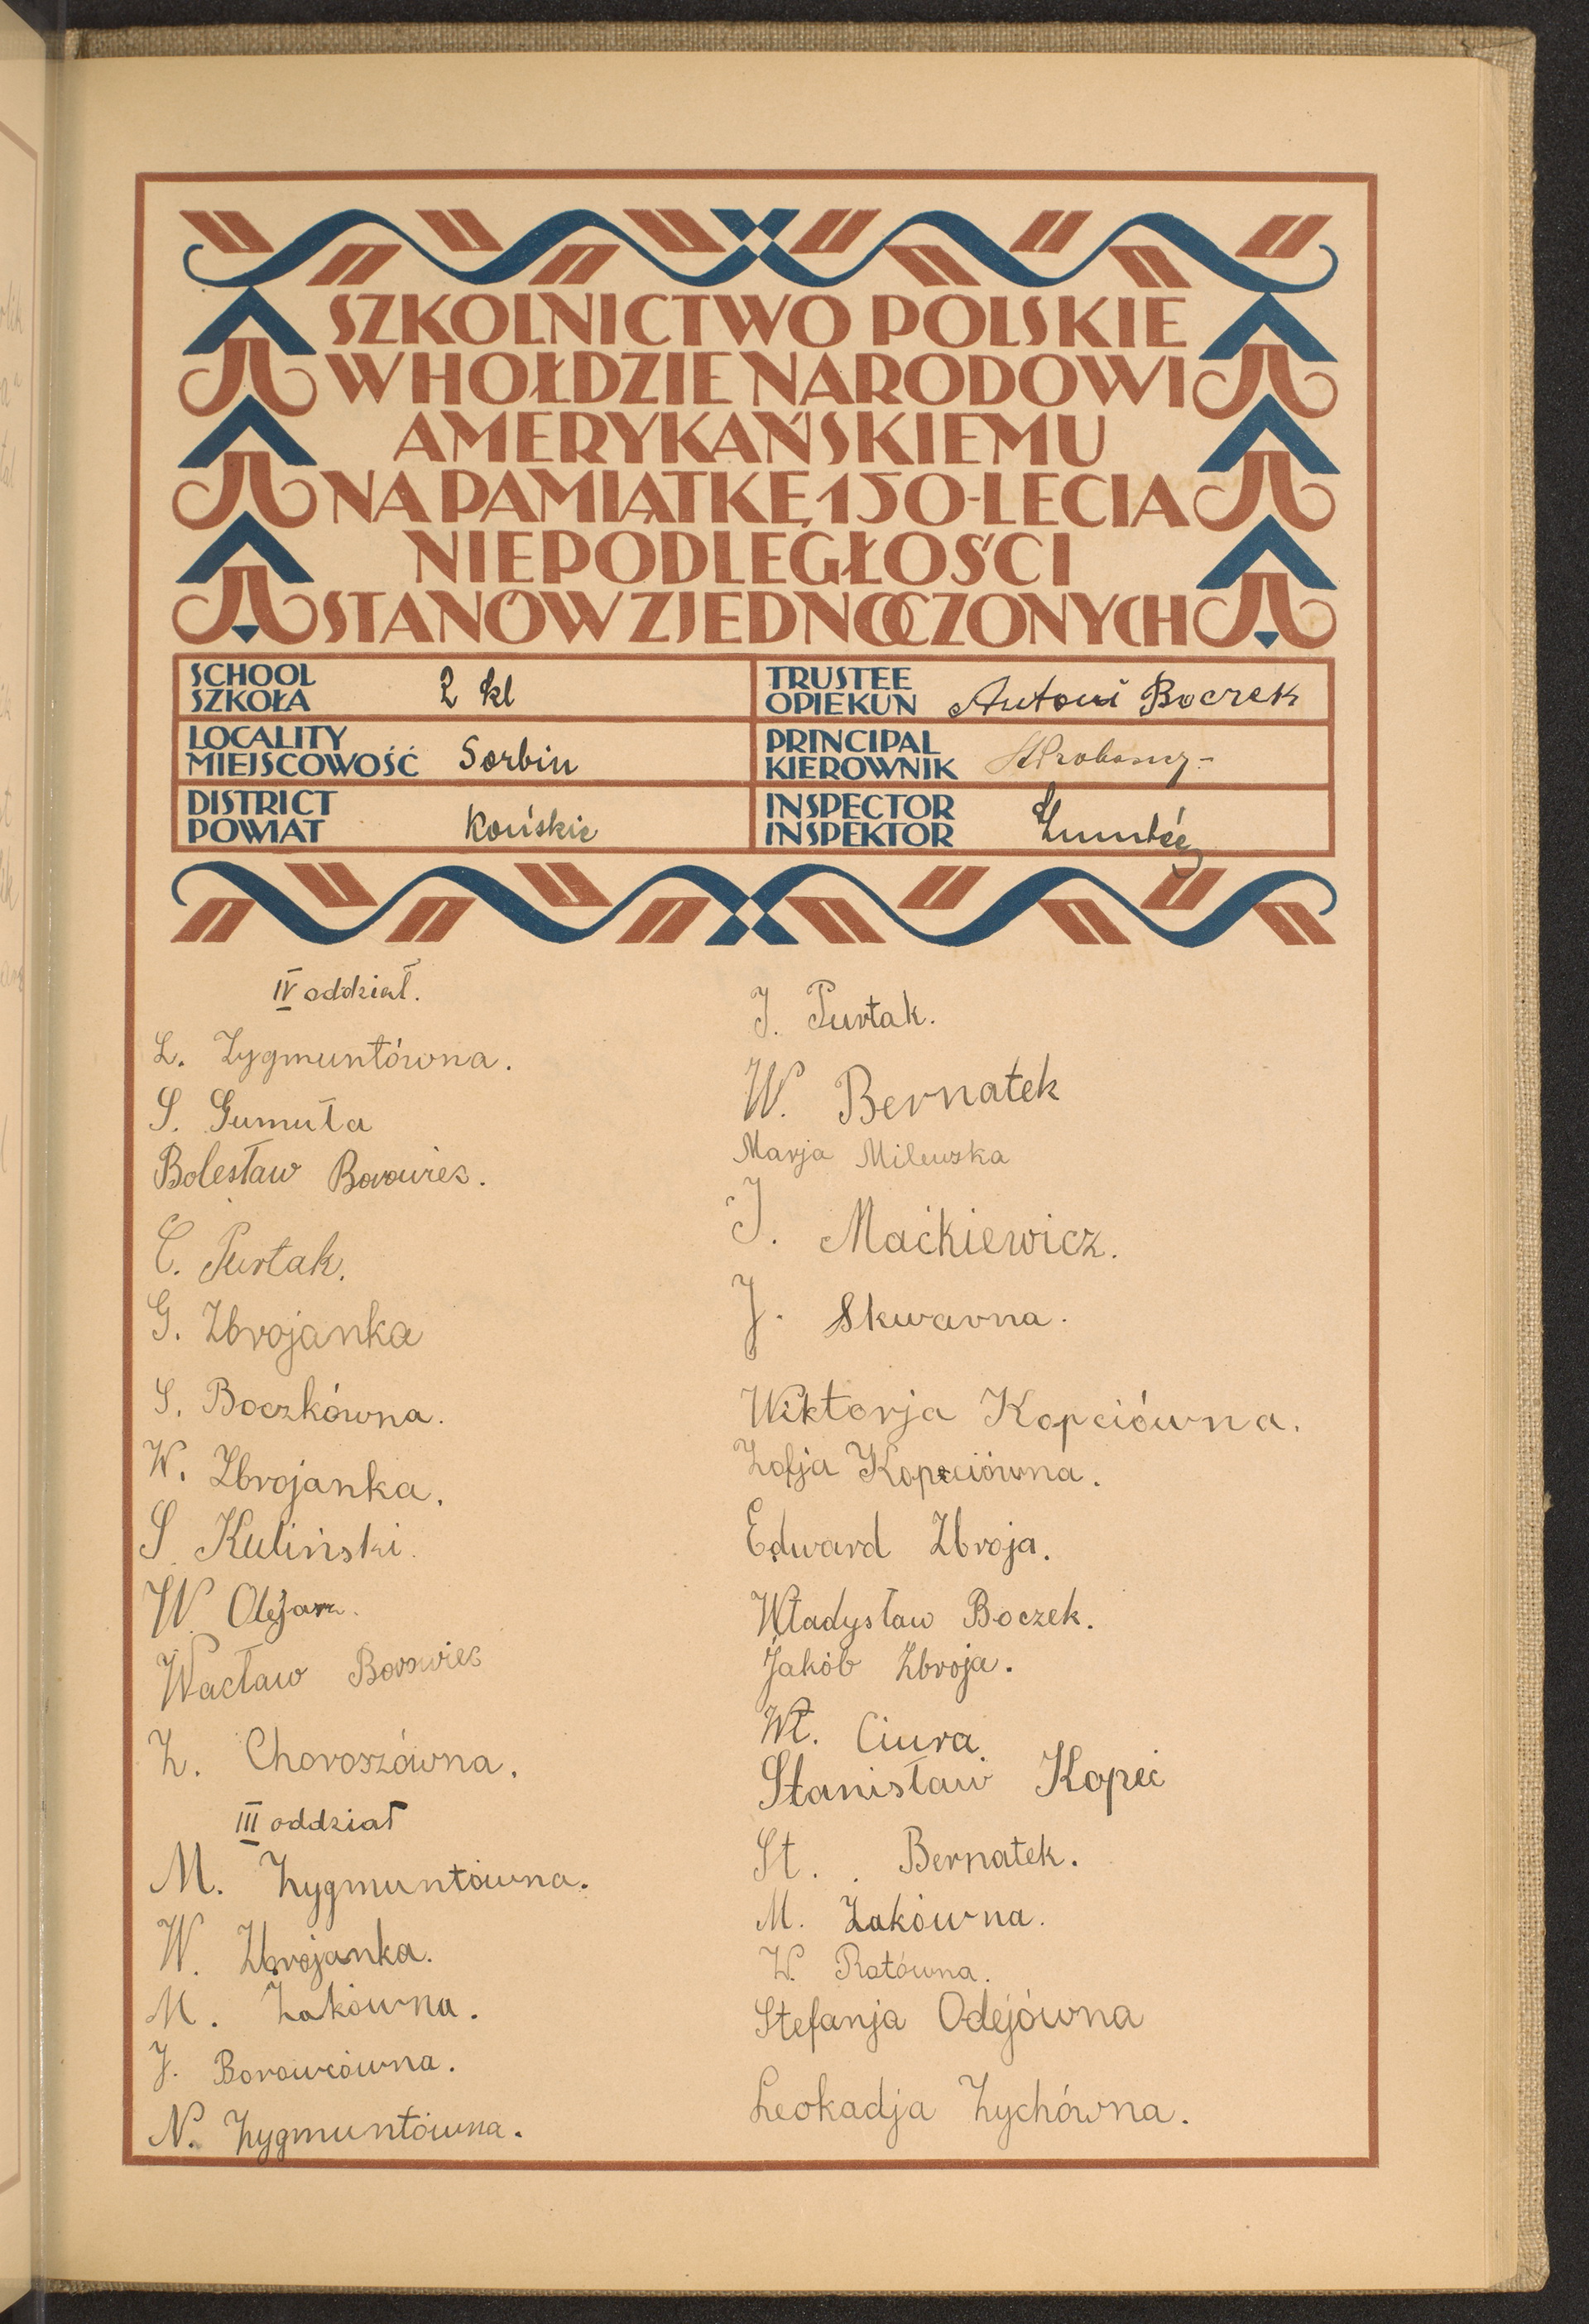 SZKOLNICTWO POLSKIE
W HOŁDZIE NARODOWI
AMERYKAŃSKIEMU
NA PAMIĄTKĘ 150-LECIA
NIEPODLEGŁOŚCI
STANÓW ZJEDNOCZONYCH
SCHOOL
SZKOŁA
2 kl
TRUSTEE
OPIEKUN
Antoni Boczek
LOCALITY
MIEJSCOWOŚĆ
Sorbin
PRINCIPAL
KIEROWNIK
DISTRICT
POWIAT
Końskie
INSPECTOR
INSPEKTOR
IV oddział.
L. Zygmuntówna.
S. Gumuła
Bolesław Borowiec.
C. Purtak.
G. Zbrojanka
S. Boczkówna.
W. Zbrojanka.
S. Kuliński.
W.
Wacław Borowiec
Z. Choroszówna.
III oddział
M. Zygmuntówna.
W. Zbrojanka.
M. Żakówna.
J. Borowcówna.
N. Zygmuntówna.
J. Purtak.
W. Bernatek
Marja Milewska
J. Maćkiewicz.
J. Skwarna.
Wiktorja Kopciówna.
Zofja Kopciówna.
Edward Zbroja.
Władysław Boczek.
Jakób Zbroja.
Wł. Ciura.
Stanisław Kopeć
St. Bernatek.
M. Żakówna.
W. Ratówna.
Stefanja Odejówna
Leokadja Zychówna.